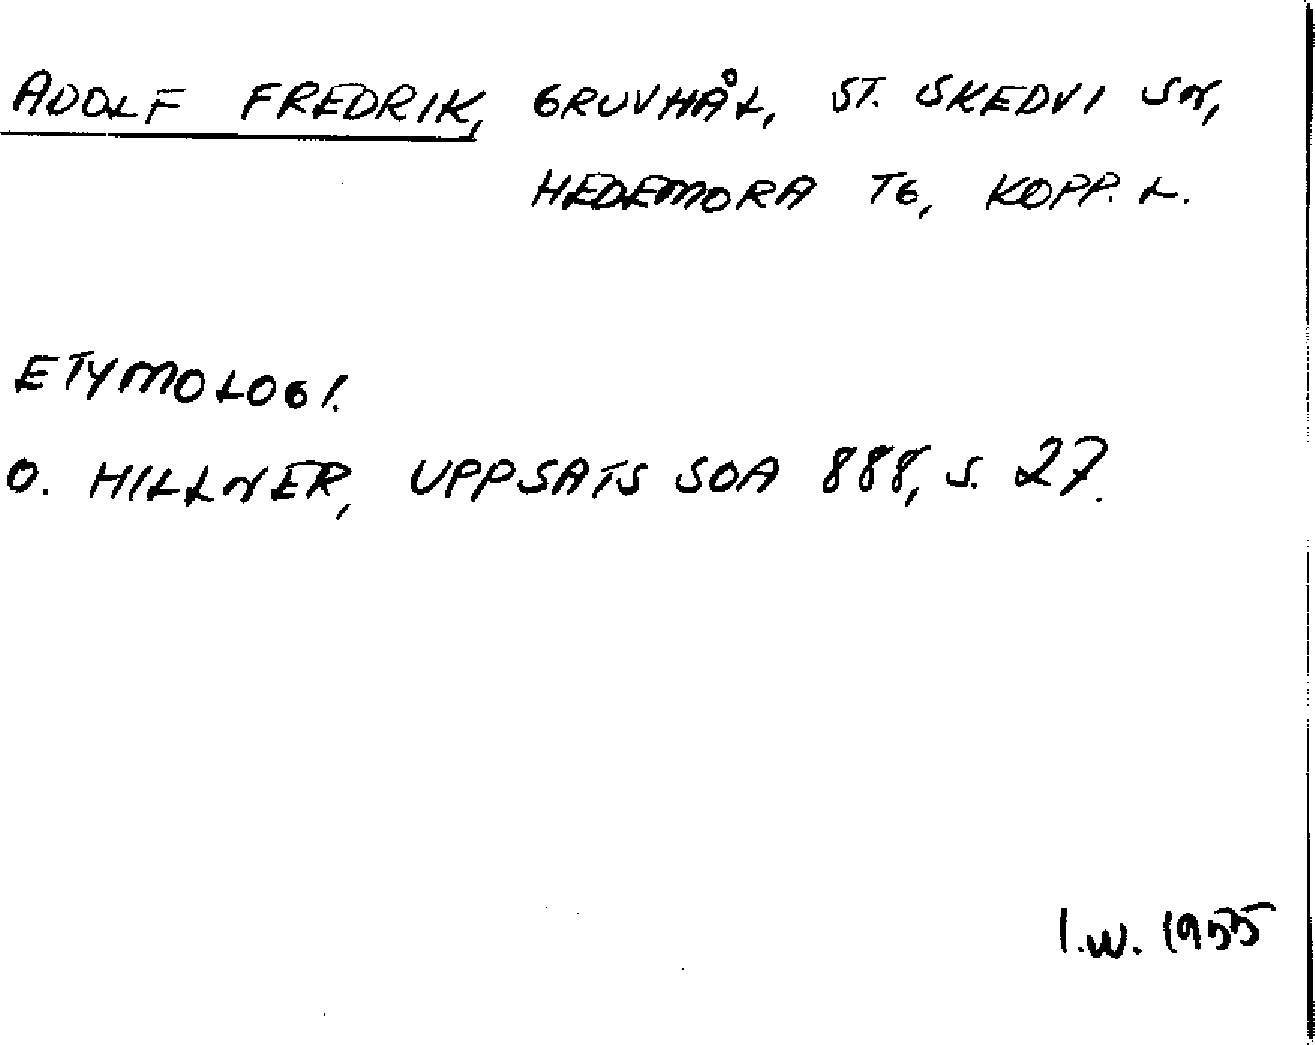 ADOLF FREDRIK, GRUVHÅL, ST. SKEDVI SN,
HEDEMORA TG, KOPP. L.
ETYMOLOGI.
O. HILLNER, UPPSATS SOA 888, S. 27.
I.W. 1955